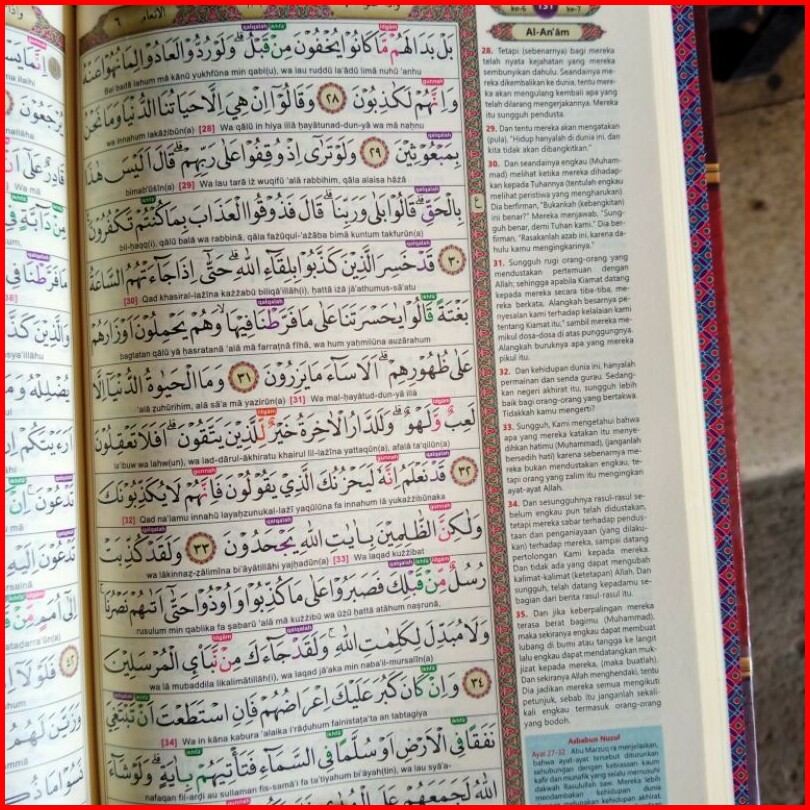 الأنعام ٦
بَلْ بَدَا لَهُمْ مَّا كَانُوْا يُخْفُوْنَ مِنْ قَبْلُ ۗ وَلَوْ رُدُّوْا لَعَادُوْا لِمَا نُهُوْا عَنْهُ
Bal badā lahum mā kānū yukhfūna min qabl(u), wa lau ruddū la'ādū limā nuhū 'anhu
وَاِنَّهُمْ لَكٰذِبُوْنَ ٢٨ وَقَالُوْٓا اِنْ هِيَ اِلَّا حَيَاتُنَا الدُّنْيَا وَمَا نَحْنُ
wa innahum lakāżibūn(a) [28] Wa qālū in hiya illā ḥayātunad-dun-yā wa mā naḥnu
بِمَبْعُوْثِيْنَ ٢٩ وَلَوْ تَرٰٓى اِذْ وُقِفُوْا عَلٰى رَبِّهِمْ ۗ قَالَ اَلَيْسَ هٰذَا
bimab'ūṡīn(a) [29] Wa lau tarā iż wuqifū 'alā rabbihim, qāla alaisa hāżā
بِالْحَقِّ ۗ قَالُوْا بَلٰى وَرَبِّنَا ۗ قَالَ فَذُوْقُوا الْعَذَابَ بِمَا كُنْتُمْ تَكْفُرُوْنَ
bil-ḥaqq(i), qālū balā wa rabbinā, qāla fażūqul-'ażāba bimā kuntum takfurūn(a)
٣٠ قَدْ خَسِرَ الَّذِيْنَ كَذَّبُوْا بِلِقَاۤءِ اللّٰهِ ۗ حَتّٰٓى اِذَا جَاۤءَتْهُمُ السَّاعَةُ
[30] Qad khasiral-lażīna każżabū biliqā'illāh(i), ḥattā iżā jā'athumus-sā'atu
بَغْتَةً قَالُوْا يٰحَسْرَتَنَا عَلٰى مَا فَرَّطْنَا فِيْهَا ۙ وَهُمْ يَحْمِلُوْنَ اَوْزَارَهُمْ
bagtatan qālū yā ḥasratanā 'alā mā farraṭnā fīhā, wa hum yaḥmilūna auzārahum
عَلٰى ظُهُوْرِهِمْ ۗ اَلَا سَاۤءَ مَا يَزِرُوْنَ ٣١ وَمَا الْحَيٰوةُ الدُّنْيَآ اِلَّا
'alā ẓuhūrihim, alā sā'a mā yazirūn(a) [31] Wa mal-ḥayātud-dun-yā illā
لَعِبٌ وَّلَهْوٌ ۗ وَلَلدَّارُ الْاٰخِرَةُ خَيْرٌ لِّلَّذِيْنَ يَتَّقُوْنَ ۗ اَفَلَا تَعْقِلُوْنَ
la'ibuw wa lahw(un), wa lad-dārul-ākhiratu khairul lil-lażīna yattaqūn(a), afalā ta'qilūn(a)
٣٢ قَدْ نَعْلَمُ اِنَّهٗ لَيَحْزُنُكَ الَّذِيْ يَقُوْلُوْنَ فَاِنَّهُمْ لَا يُكَذِّبُوْنَكَ
[32] Qad na'lamu innahū layaḥzunukal-lażī yaqūlūna fa innahum lā yukażżibūnaka
وَلٰكِنَّ الظّٰلِمِيْنَ بِاٰيٰتِ اللّٰهِ يَجْحَدُوْنَ ٣٣ وَلَقَدْ كُذِّبَتْ
wa lākinnaẓ-ẓālimīna bi'āyātillāhi yajḥadūn(a) [33] Wa laqad kużżibat
رُسُلٌ مِّنْ قَبْلِكَ فَصَبَرُوْا عَلٰى مَا كُذِّبُوْا وَاُوْذُوْا حَتّٰٓى اَتٰىهُمْ نَصْرُنَا
rusulum min qablika fa ṣabarū 'alā mā kużżibū wa ūżū ḥattā atāhum naṣrunā,
وَلَا مُبَدِّلَ لِكَلِمٰتِ اللّٰهِ ۚ وَلَقَدْ جَاۤءَكَ مِنْ نَّبَإِ۟ى الْمُرْسَلِيْنَ
wa lā mubaddila likalimātillāh(i), wa laqad jā'aka min naba'il-mursalīn(a)
٣٤ وَاِنْ كَانَ كَبُرَ عَلَيْكَ اِعْرَاضُهُمْ فَاِنِ اسْتَطَعْتَ اَنْ تَبْتَغِيَ
[34] Wa in kāna kabura 'alaika i'rāḍuhum fa'inistaṭa'ta an tabtagiya
نَفَقًا فِى الْاَرْضِ اَوْ سُلَّمًا فِى السَّمَاۤءِ فَتَأْتِيَهُمْ بِاٰيَةٍ ۗ وَلَوْ شَاۤءَ
nafaqan fil-arḍi au sullaman fis-samā'i fa ta'tiyahum bi'āyah(tin), wa lau syā'a-
اللّٰهُ لَجَمَعَهُمْ عَلَى
131
Al-An'ām
28. Tetapi (sebenarnya) bagi mereka
telah nyata kejahatan yang mereka
sembunyikan dahulu. Seandainya me-
reka dikembalikan ke dunia, tentu mere-
ka akan mengulang kembali apa yang
telah dilarang mengerjakannya. Mereka
itu sungguh pendusta.
29. Dan tentu mereka akan mengatakan
(pula), "Hidup hanyalah di dunia ini, dan
kita tidak akan dibangkitkan."
30. Dan seandainya engkau (Muham-
mad) melihat ketika mereka dihadap-
kan kepada Tuhannya (tentulah engkau
melihat peristiwa yang mengharukan).
Dia berfirman, "Bukankah (kebangkitan)
ini benar?" Mereka menjawab, "Sung-
guh benar, demi Tuhan kami." Dia ber-
firman, "Rasakanlah azab ini, karena da-
hulu kamu mengingkarinya."
31. Sungguh rugi orang-orang yang
mendustakan pertemuan dengan
Allah; sehingga apabila Kiamat datang
kepada mereka secara tiba-tiba, me-
reka berkata, Alangkah besarnya pe-
nyesalan kami terhadap kelalaian kami
tentang Kiamat itu," sambil mereka me-
mikul dosa-dosa di atas punggungnya.
Alangkah buruknya apa yang mereka
pikul itu.
32. Dan kehidupan dunia ini, hanyalah
permainan dan senda gurau. Sedang-
kan negeri akhirat itu, sungguh lebih
baik bagi orang-orang yang bertakwa.
Tidakkah kamu mengerti?
33. Sungguh, Kami mengetahui bahwa
apa yang mereka katakan itu menye-
dihkan hatimu (Muhammad), (janganlah
bersedih hati) karena sebenarnya me-
reka bukan mendustakan engkau, te-
tapi orang yang zalim itu mengingkari
ayat-ayat Allah.
34. Dan sesungguhnya rasul-rasul se-
belum engkau pun telah didustakan,
tetapi mereka sabar terhadap pendus-
taan dan penganiayaan (yang dilaku-
kan) terhadap mereka, sampai datang
pertolongan Kami kepada mereka.
Dan tidak ada yang dapat mengubah
kalimat-kalimat (ketetapan) Allah. Dan
sungguh, telah datang kepadamu se-
bagian dari berita rasul-rasul itu.
35. Dan jika keberpalingan mereka
terasa berat bagimu (Muhammad),
maka sekiranya engkau dapat membuat
lubang di bumi atau tangga ke langit
lalu engkau dapat mendatangkan muk-
jizat kepada mereka, (maka buatlah).
Dan sekiranya Allah menghendaki, tentu
Dia jadikan mereka semua mengikuti
petunjuk, sebab itu janganlah sekali-
kali engkau termasuk orang-orang
yang bodoh.
Asbabun Nuzul
Ayat 27-32 Abu Marzuq ra menjelaskan,
bahwa ayat-ayat tersebut diturunkan
sehubungan dengan kebiasaan kaum
kafir dan munafik yang selalu memusuhi
dakwah Rasulullah saw. Mereka lebih
mendambakan kehidupan dunia